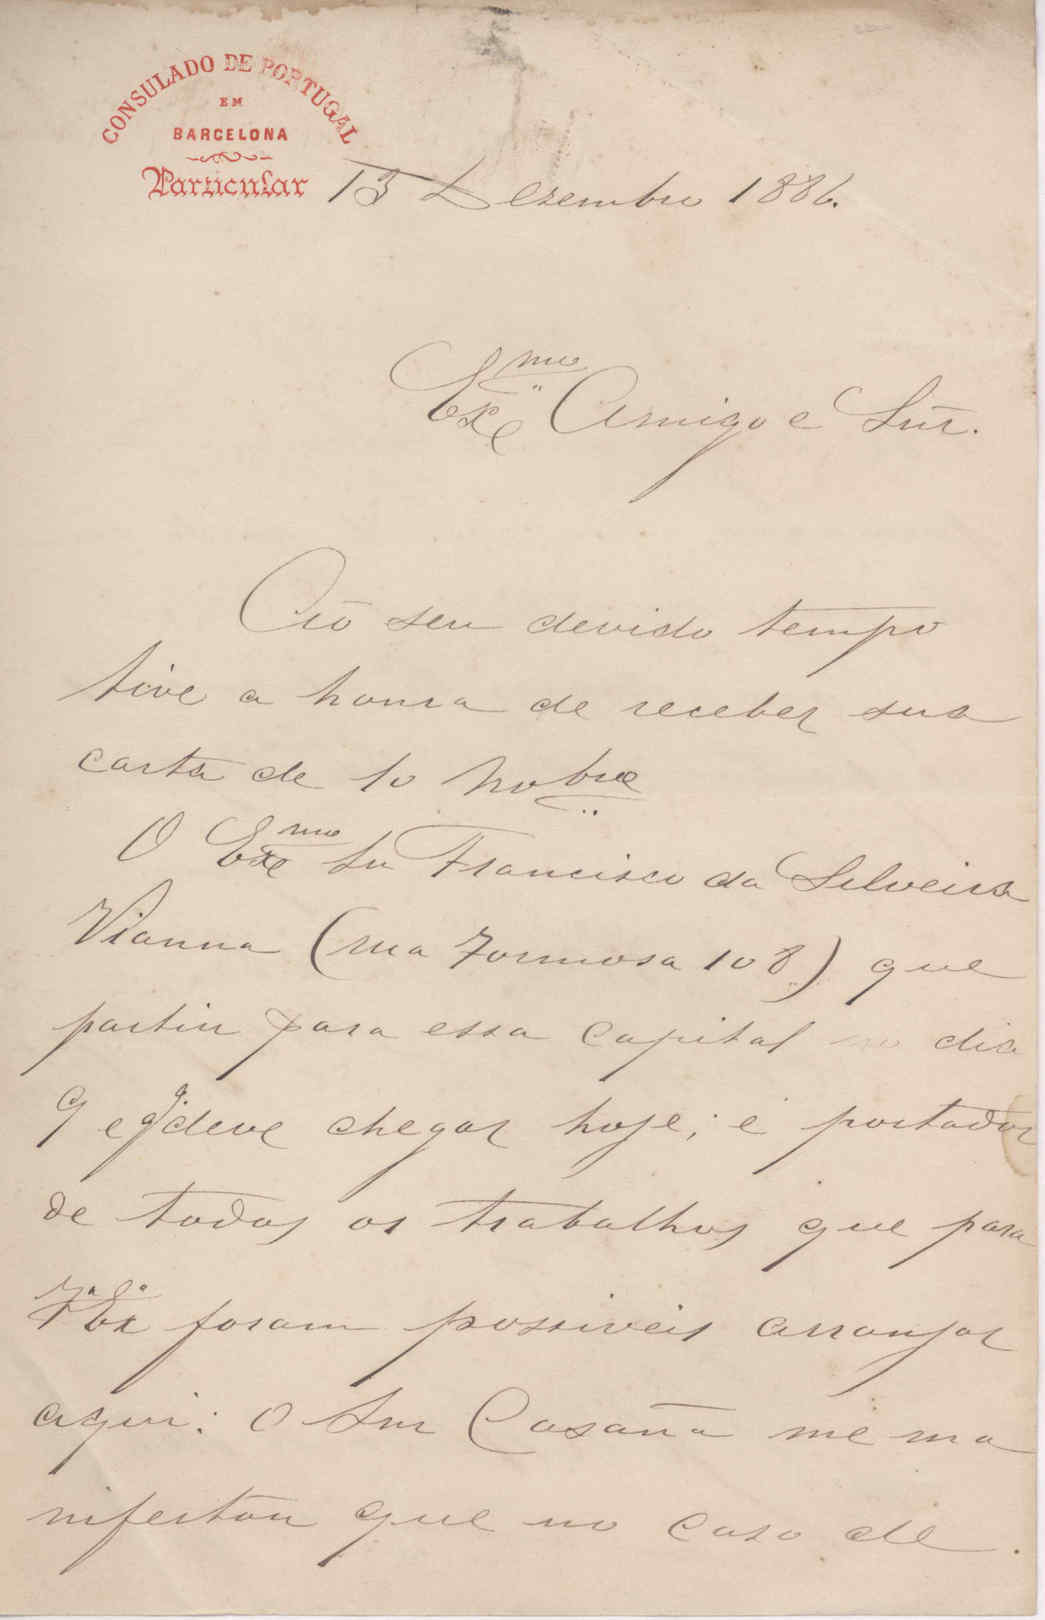 CONSULADO DE PORTUGAL
EM
BARCELONA
Particular
13 Dezembro 1886.
Exmo Amigo e Snr.
Ao seu devido tempo
tive a honra de receber sua
carta de 10 Nobre
O Exmo Sr Francisco da Silveira
Vianna (rua Formosa 108) que
partiu para essa capital no dia
9 e q. deve chegar hoje; é portador
de todos os trabalhos que para
Va Exa foram possiveis arranjar
aqui: O Snr Casaña me ma
nifestou que no caso de